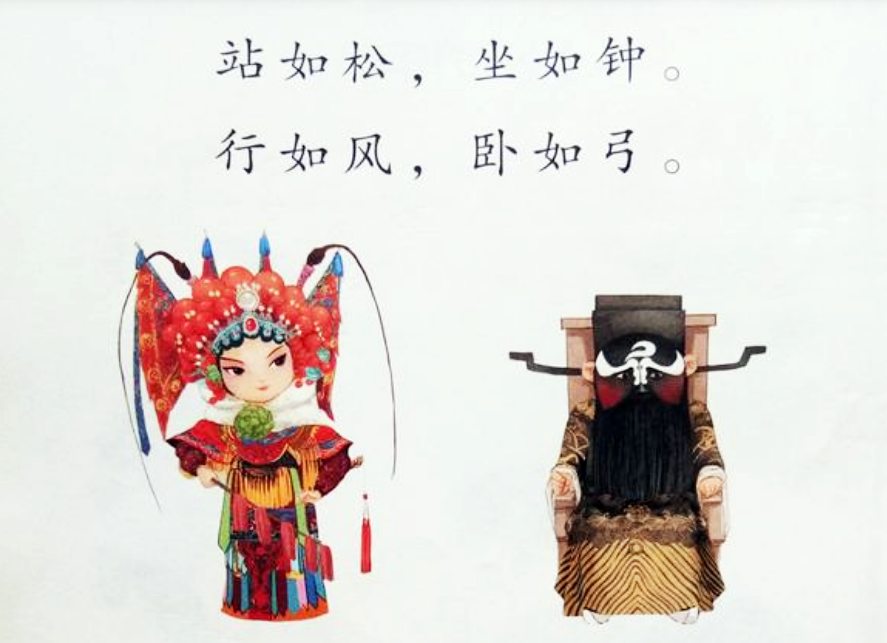 站如松，坐如钟。
行如风，卧如弓。